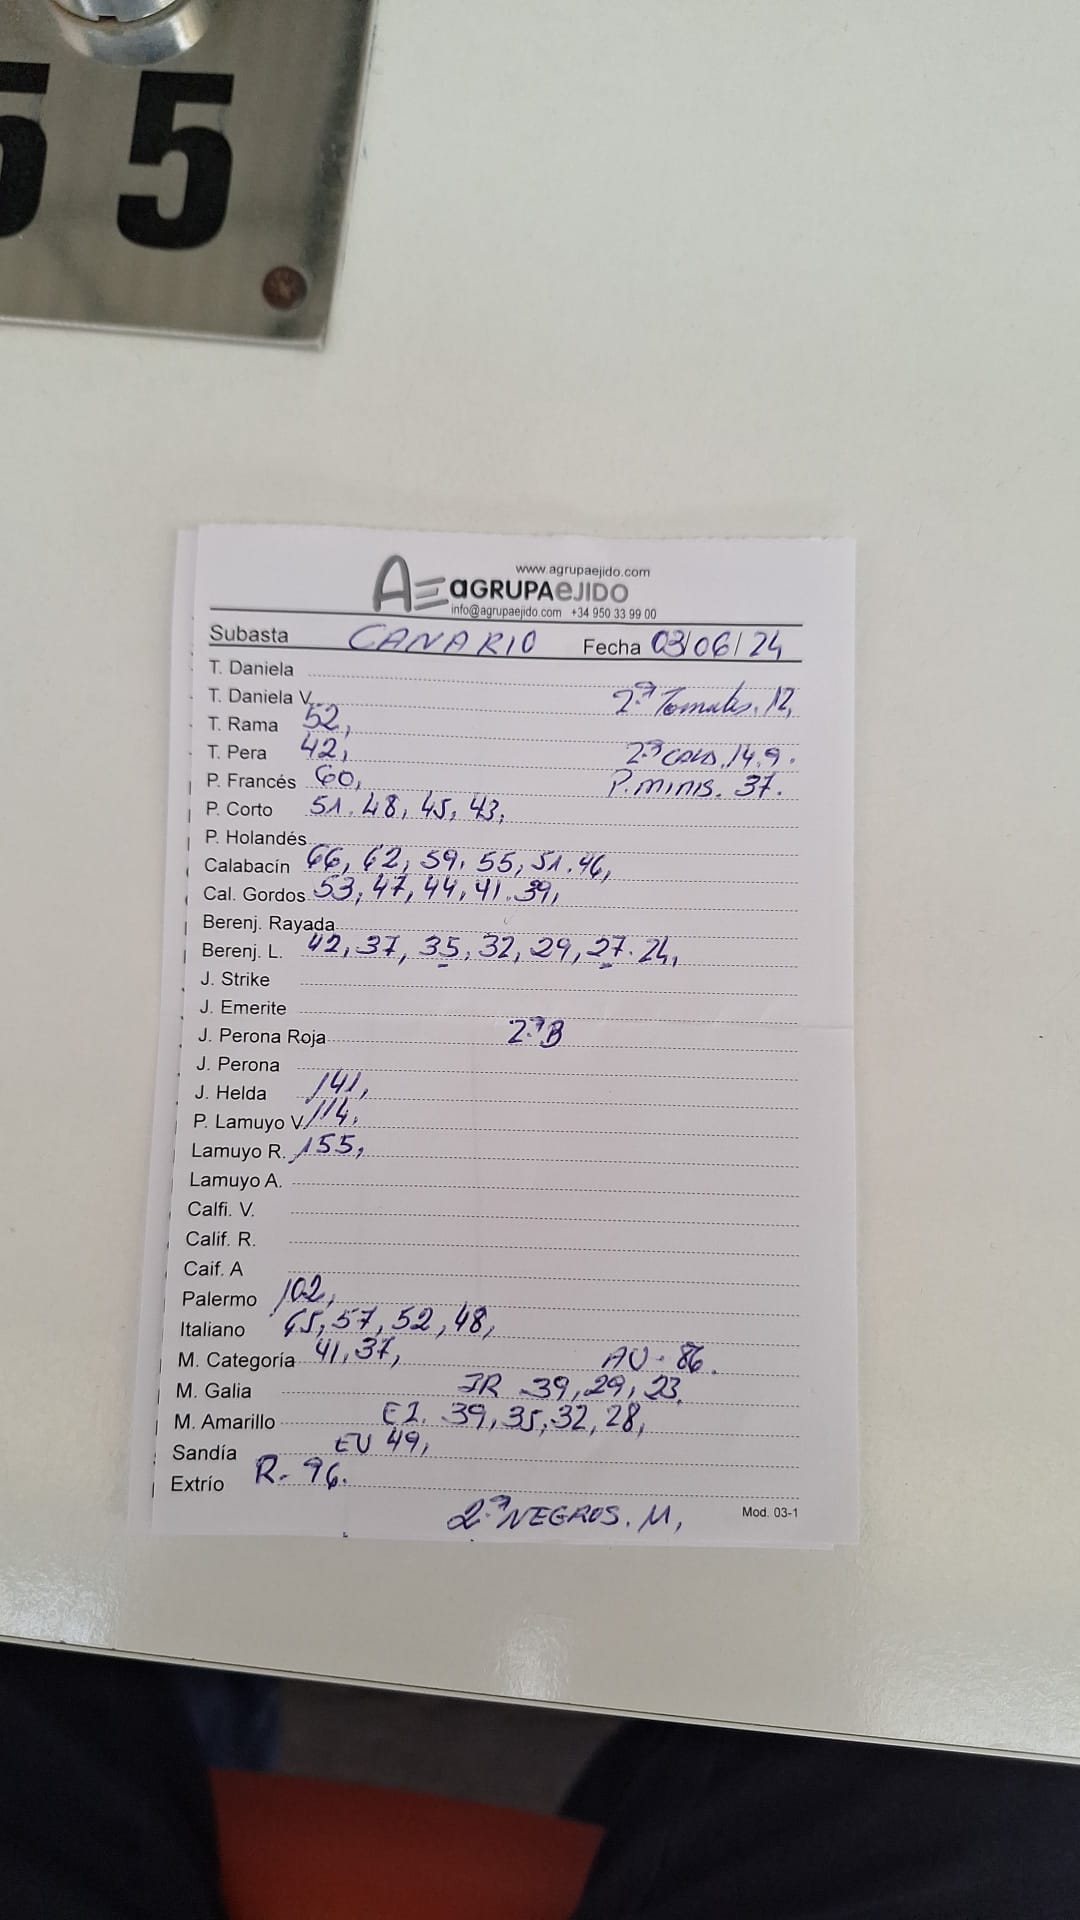 55
www.agrupaejido.com
AE aGRUPAeJIDO
info@agrupaejido.com +34 950 33 99 00
Subasta CANARIO Fecha 03/06/24
T. Daniela
T. Daniela V. 2ª Tomates. 12,
T. Rama 52,
T. Pera 42, 2ª CALA. 14.9.
P. Francés 60, P. MINIS. 37.
P. Corto 51. 48, 45, 43,
P. Holandés
Calabacín 66, 62, 59. 55, 51. 46,
Cal. Gordos 53, 47, 44, 41. 39,
Berenj. Rayada
Berenj. L. 42, 37, 35, 32, 29, 27. 24,
J. Strike
J. Emerite
J. Perona Roja 2ª B
J. Perona
J. Helda 141,
P. Lamuyo V. 114,
Lamuyo R. 155,
Lamuyo A.
Calfi. V.
Calif. R.
Caif. A
Palermo 102,
Italiano 65, 57, 52, 48,
M. Categoría 41, 37, AU - 86.
M. Galia IR 39, 29, 23,
M. Amarillo EI. 39, 35, 32, 28,
Sandía EU 49,
Extrío R. 96.
2ª NEGROS. M,
Mod. 03-1